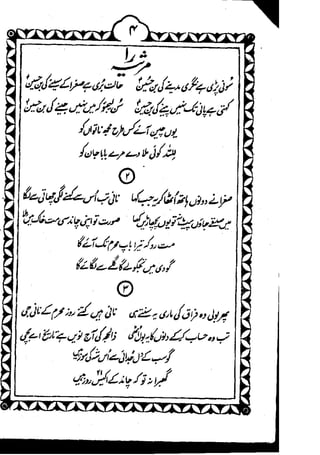 ۴
مرثیہ ۱
سُونی پڑی ہے نگری مدینے کی بن حسینؑ حالت بُری ہے صغراؑ کے سینے کی بن حسینؑ
کہتی ہے پانی تک نہیں پینے کی بن حسینؑ سُن لیجیو کہ میں نہیں جینے کی بن حسینؑ
یوں چین آئے کس طرح مجھ ناتواں کو
للہ کوئی ملا دے مرے بابا جان کو
۲
صغراؑ نے دونوں ہاتھ اُٹھا کر یہ جب کہا نانی تب اُس سے کہنے لگی چھاتی سے لگا
میں صدقے جاؤں پیٹے تو یوں پچھاڑیں کھا صورت تو اپنی چاند سی مت خاک میں ملا
مت رو کہ تیرا باپ محرم تک آئے گا
گودی میں تجھ کو لے گا گلے سے لگائے گا
۳
پھر بولی وہ فراق کی ماری یہ سنتے ہی نانی ہیں کتنے روز محرم کے نانی جی
تب وہ حساب کر کے دنوں کا یہ بول اُٹھی ذالحجہ کی آج نویں ہے تاریخ اے بچی
گو سب کے دل جدائی سے اُس شہ کی سوز ہیں
گھبرا نہ تو کہ چاند کے اکیس روز ہیں